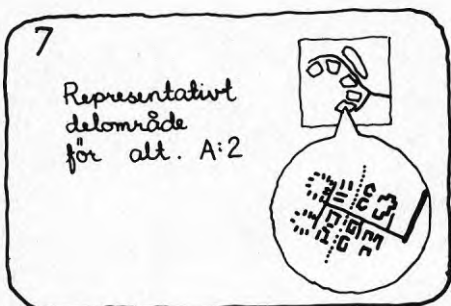 7
Representativt
delområde
för alt. A:2